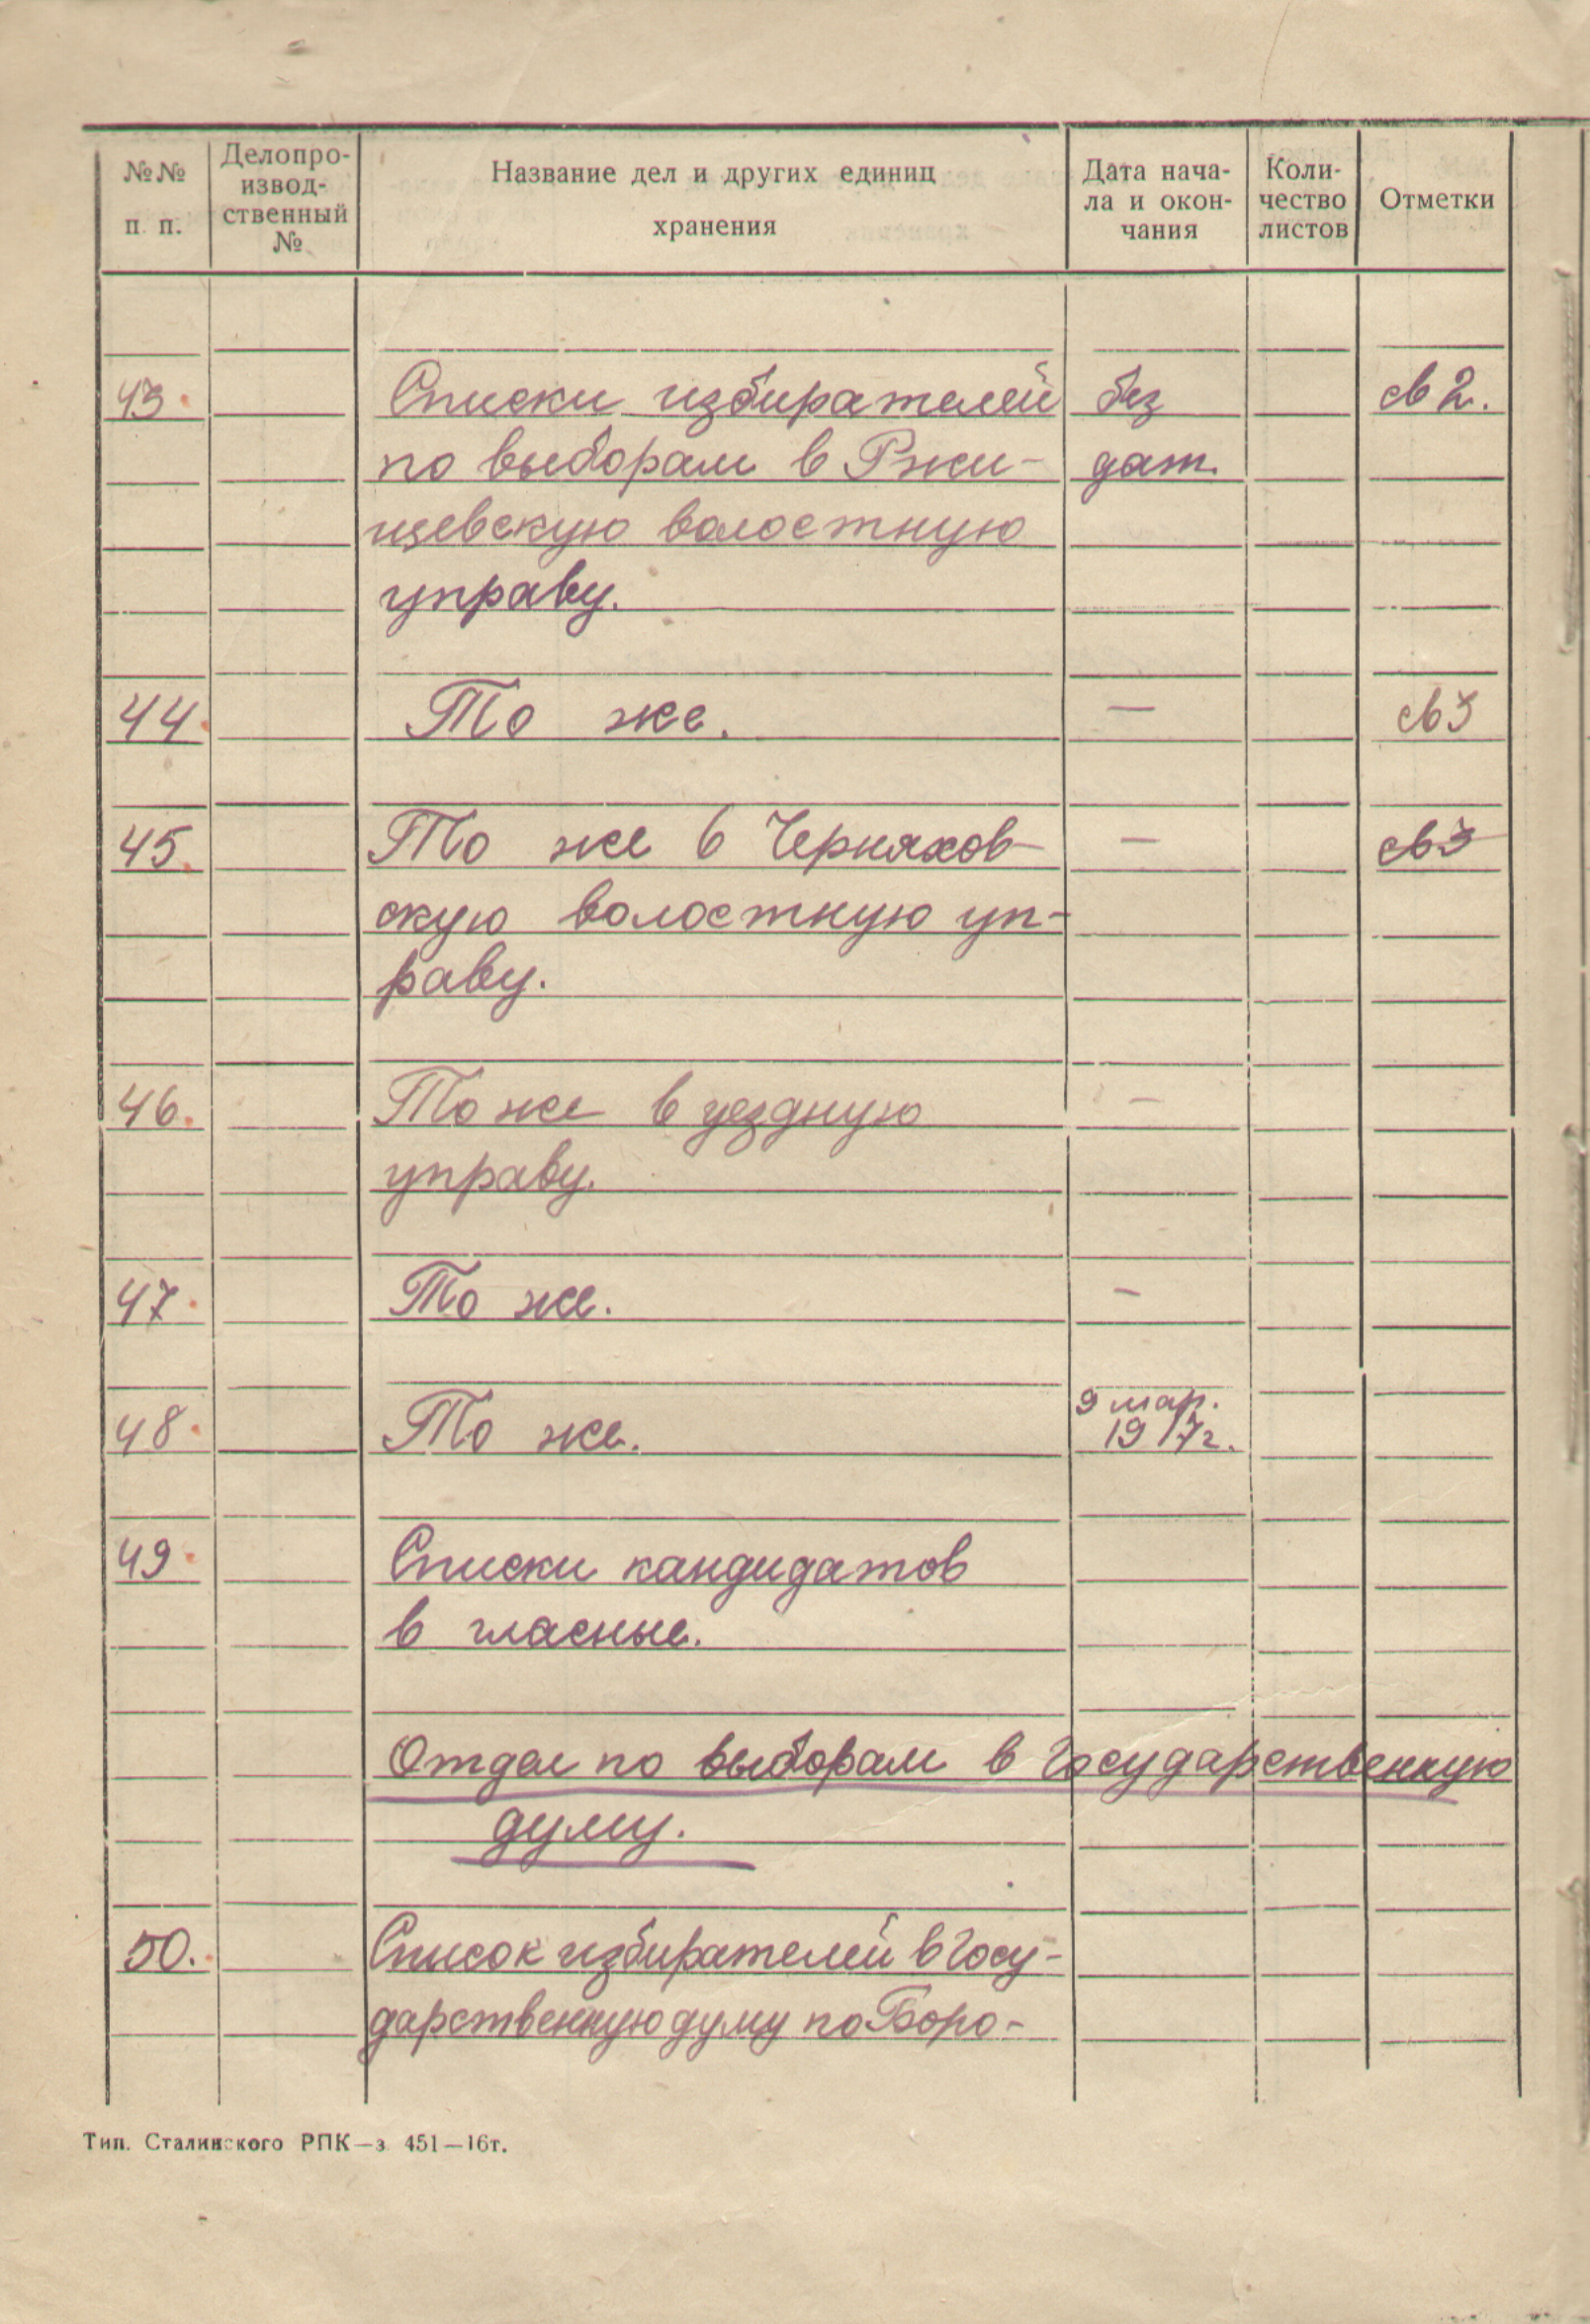 №№ п. п.
Делопро-
извод-
ственный
№
Название дел и других единиц
хранения
Дата нача-
ла и окон-
чания
Коли-
чество
листов
Отметки
43. Списки избирателей без св 2.
по выборам в Ржи- дат.
щевскую волостную
управу.
44. То же. — св 3
45. То же в Черняхов- — св 3
скую волостную уп-
раву.
46. То же в уездную —
управу.
47. То же. —
9 мар.
48. То же. 1917г.
49. Списки кандидатов
в гласные.
Отдел по выборам в Государственную
думу.
50. Список избирателей в Госу-
дарственную думу по Боро-
Тип. Сталинского РПК—з. 451—16т.